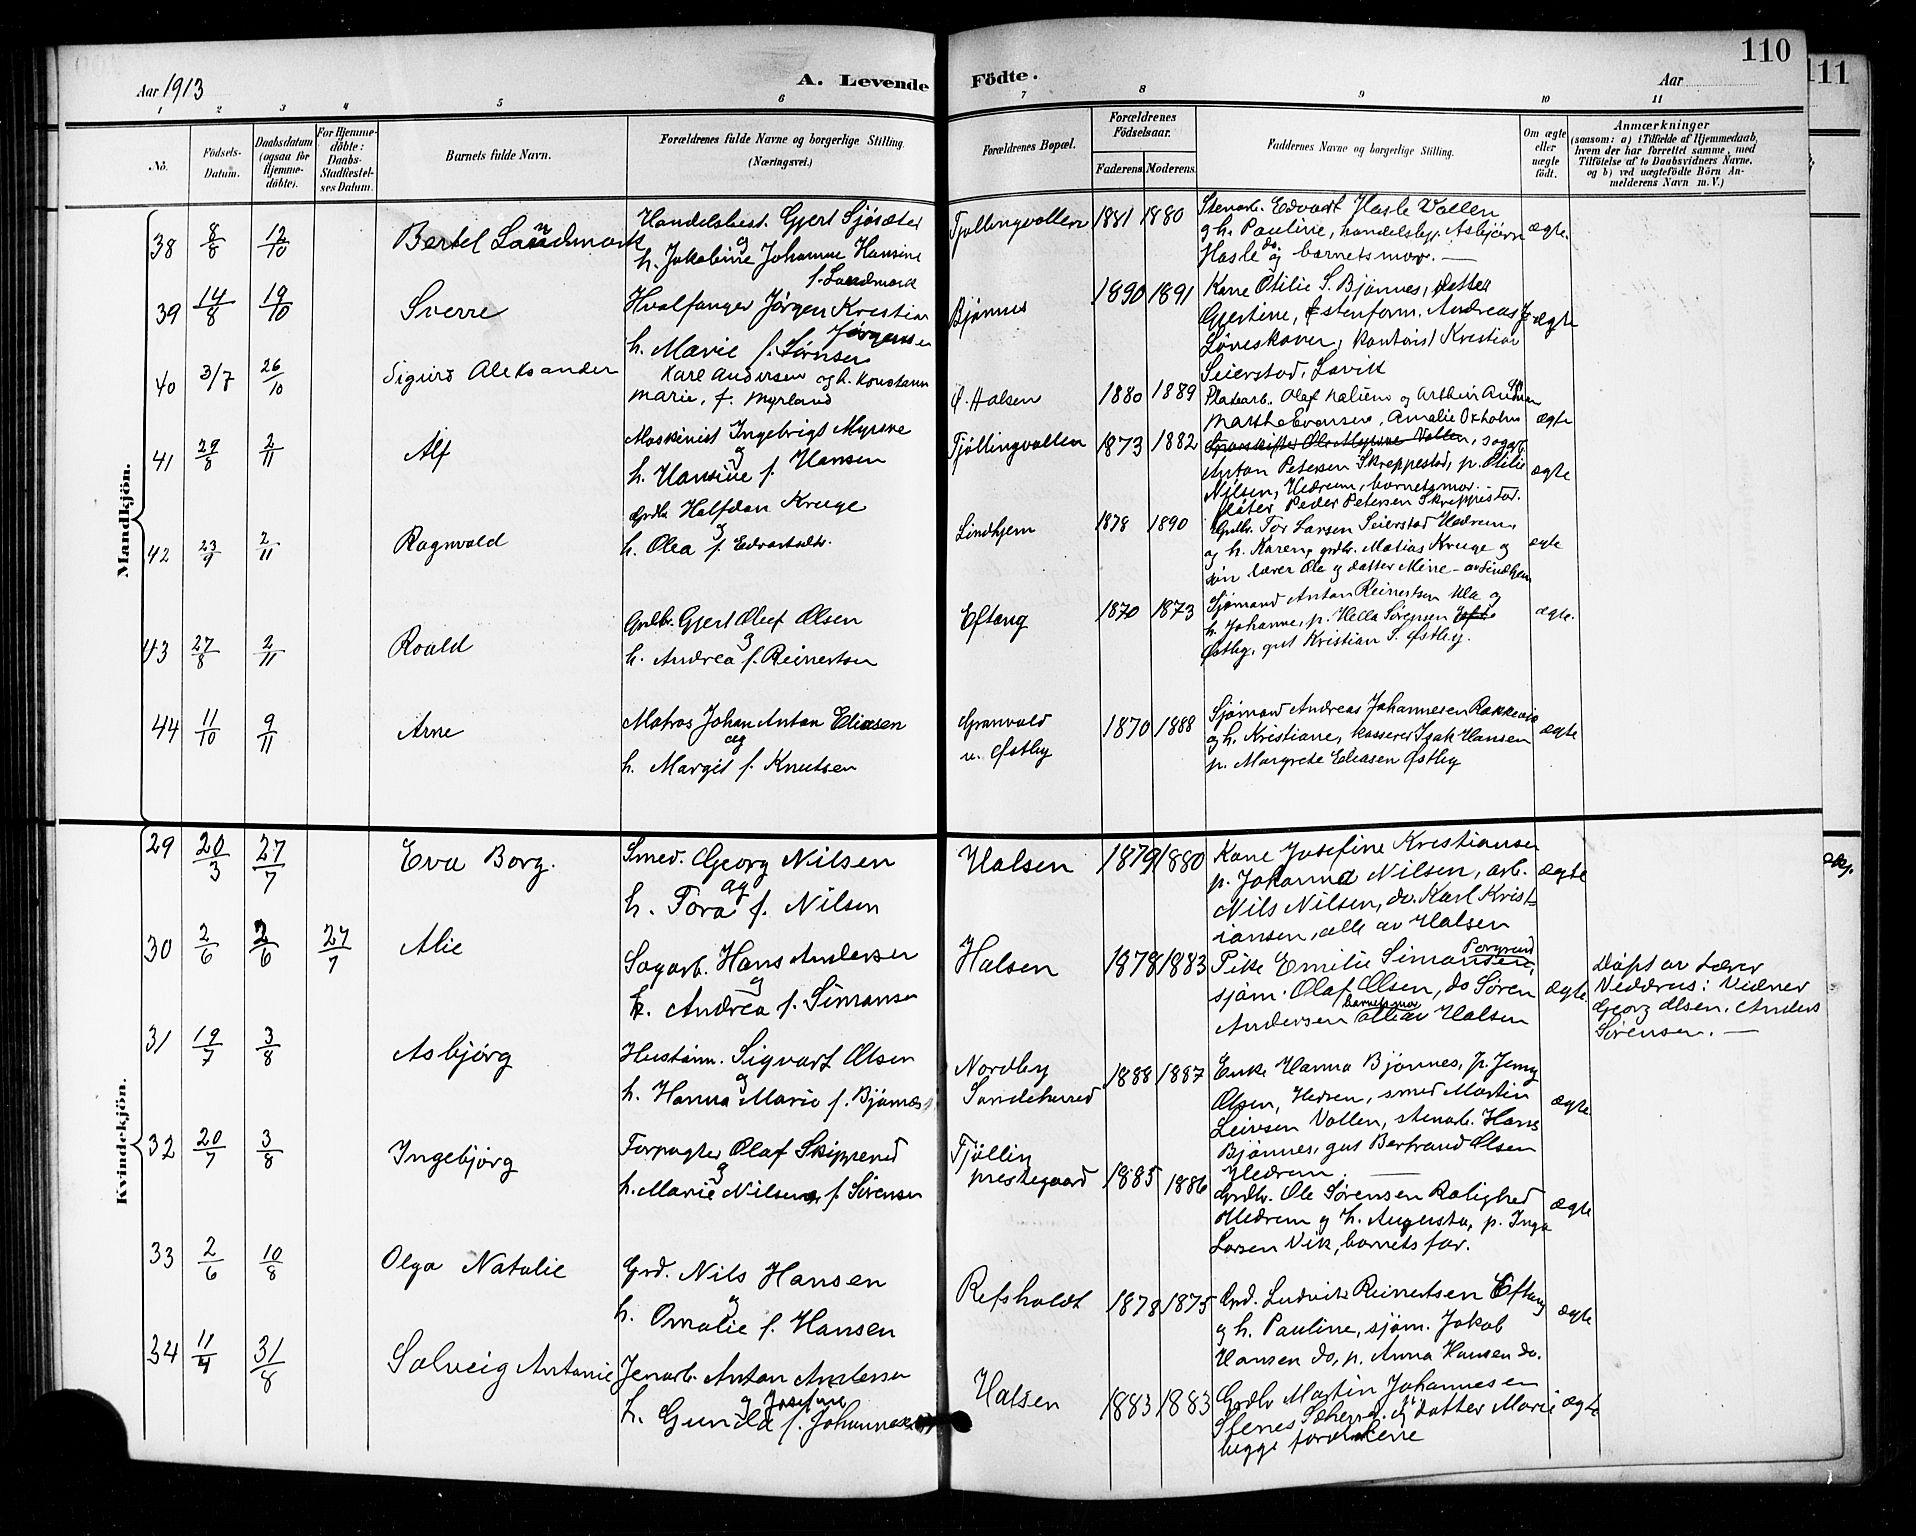 110
111
Aar 1913
A. Levende Födte.
Aar
1 2 3 4 5 6 7 8 9 10 11
No.
Födsels-Datum.
Daabsdatum (ogsaa för Hjemme-döbte).
For Hjemme-döbte: Daabs-Stadfæstel-ses Datum.
Barnets fulde Navn.
Forældrenes fulde Navne og borgerlige Stilling. (Næringsvei.)
Forældrenes Bopæl.
Forældrenes Födselsaar.
Faderens. Moderens.
Faddernes Navne og borgerlige Stilling.
Om ægte eller uægte födt.
Anmærkninger
(saasom: a) i Tilfælde af Hjemmedaab,
hvem der har forrettet samme, med
Tilföielse af to Daabsvidners Navne,
og b) ved uægtefödte Börn An-
melderens Navn m. V.)
Mandkjön.
38 8/8 12/10 Bertel Landmark
Handelsbest. Gjert Sjösæter
og
h. Jakobine Johanne Hansine
f. Landmark
Tjøllingvollen 1881 1880
Stenarb. Edvart Hasle Vollen
og h. Pauline, handelsbetj. Asbjørn
Hasle do og barnets mor. —
ægte.
39 14/8 19/10 Sverre
Hvalfanger Jørgen Kristian
Jørgensen
h. Marie f. Sørnsen
Bjønnes 1890 1891
Kone Otilie S. Bjønnes, datter
Gjertine, stenform. Andreas
Løveskoven, kontorist Kristian
Seierstad, Larvik
ægte
40 3/7 26/10 Sigurd Aleksander
Karl Andersen og h. Konstanse
Marie, f. Myrland
Ø. Halsen 1880 1889
Platearb. Olaf Kalum og Arthur Andersen
Marthe Evensen, Amalie Oxholm
ægte
41 29/8 2/11 Alf
Maskinist Ingebrigt Myrene
og
h. Hansine f. Hansen
Tjöllingvollen 1873 1882
Vollen, sagarb.
Anton Petersen Skreppestad, p. Otilie
Nilsen, Hedrum, barnets mor.
Peder Petersen Skreppestad.
ægte
42 23/9 2/11 Ragnvald
Grdbr. Halfdan Kruge
og
h. Olea f. Edvartsdtr.
Lindhjem 1878 1890
Grdbr. Tor Larsen Seierstad Hedrum,
og h. Karen, grdbr. Matias Kruge og
søn lærer Ole og datter Mine – av Lindhjem
ægte
43 27/8 2/11 Roald
Grdbr. Gjert Oluf Olsen
og
h. Andrea f. Reinertsen
Eftang 1870 1873
Sjømand Anton Reinertsen Ula og
h. Johanne, p. Hella Sørensen
Østby, gut Kristian S. Østby.
ægte.
44 11/10 9/11 Arne
Matros Johan Anton Eliasen
og
h. Margit f. Knutsen
Grønvold
v. Østby
1870 1888
Sjømand Andreas Johannesen Rakkevik
og h. Kristiane, kasserer Isak Hansen
p. Margrete Eliasen Østby
ægte
Kvindekjön.
29 20/3 27/7 Eva Borg.
Smed. Georg Nilsen
og
h. Tora f. Nilsen
Halsen 1879 1880
Kone Josefine Kristiansen
p. Johanna Nilsen, arb.
Nils Nilsen, do. Karl Krist-
iansen, alle av Halsen
ægte
30 2/6 2/6 27/7 Alie
Sagarb. Hans Andersen
og
h. Andrea f. Simonsen
Halsen 1878 1883
Porsgrund
Pike Emilie Simonsen,
sjøm. Olaf Olsen, do Søren
barnets mor
Andersen alle av Halsen
ægte
Døpt av Lærer
Vidner
Georg Olsen. Anders
Sørensen. —
31 19/7 3/8 Asbjörg
Hustøm. Sigvart Olsen
og
h. Hanna Marie f. Bjønnes
Nordby
Sandeherred
1888 1887
Enke Hanna Bjönnes, p. Jenny
Olsen, Hedrum, smed Martin
Leivsen Vollen, stenarb. Hans
Bjønnes, gut Bertrand Olsen
Hedrum. —
ægte
32 20/7 3/8 Ingebjörg
Forpagter Olaf Skippered
og
h. Marie Nilsen f. Sørensen
Tjöllin
prestegaard
1885 1886
Grdbr. Ole Sørensen Rolighed
Hedrum og h. Augusta, p. Inga
Larsen Vik, barnets far.
ægte
33 2/6 10/8 Olga Natalie
Grd. Nils Hansen
og
h. Omalie f. Hansen
Refsholdt 1878 1875
Grd. Ludvik Reinertsen Eftang
og h. Pauline, sjøm. Jakob
Hansen do, p. Anna Hansen do.
ægte
34 11/4 31/8 Solveig Antonie
Jenarb. Anton Andersen
og Josefine
h. Gunda f. Johannesen
Halsen 1883 1883
Grdbr Martin Johannesen
datter Marie
begge foreldrene
ægte